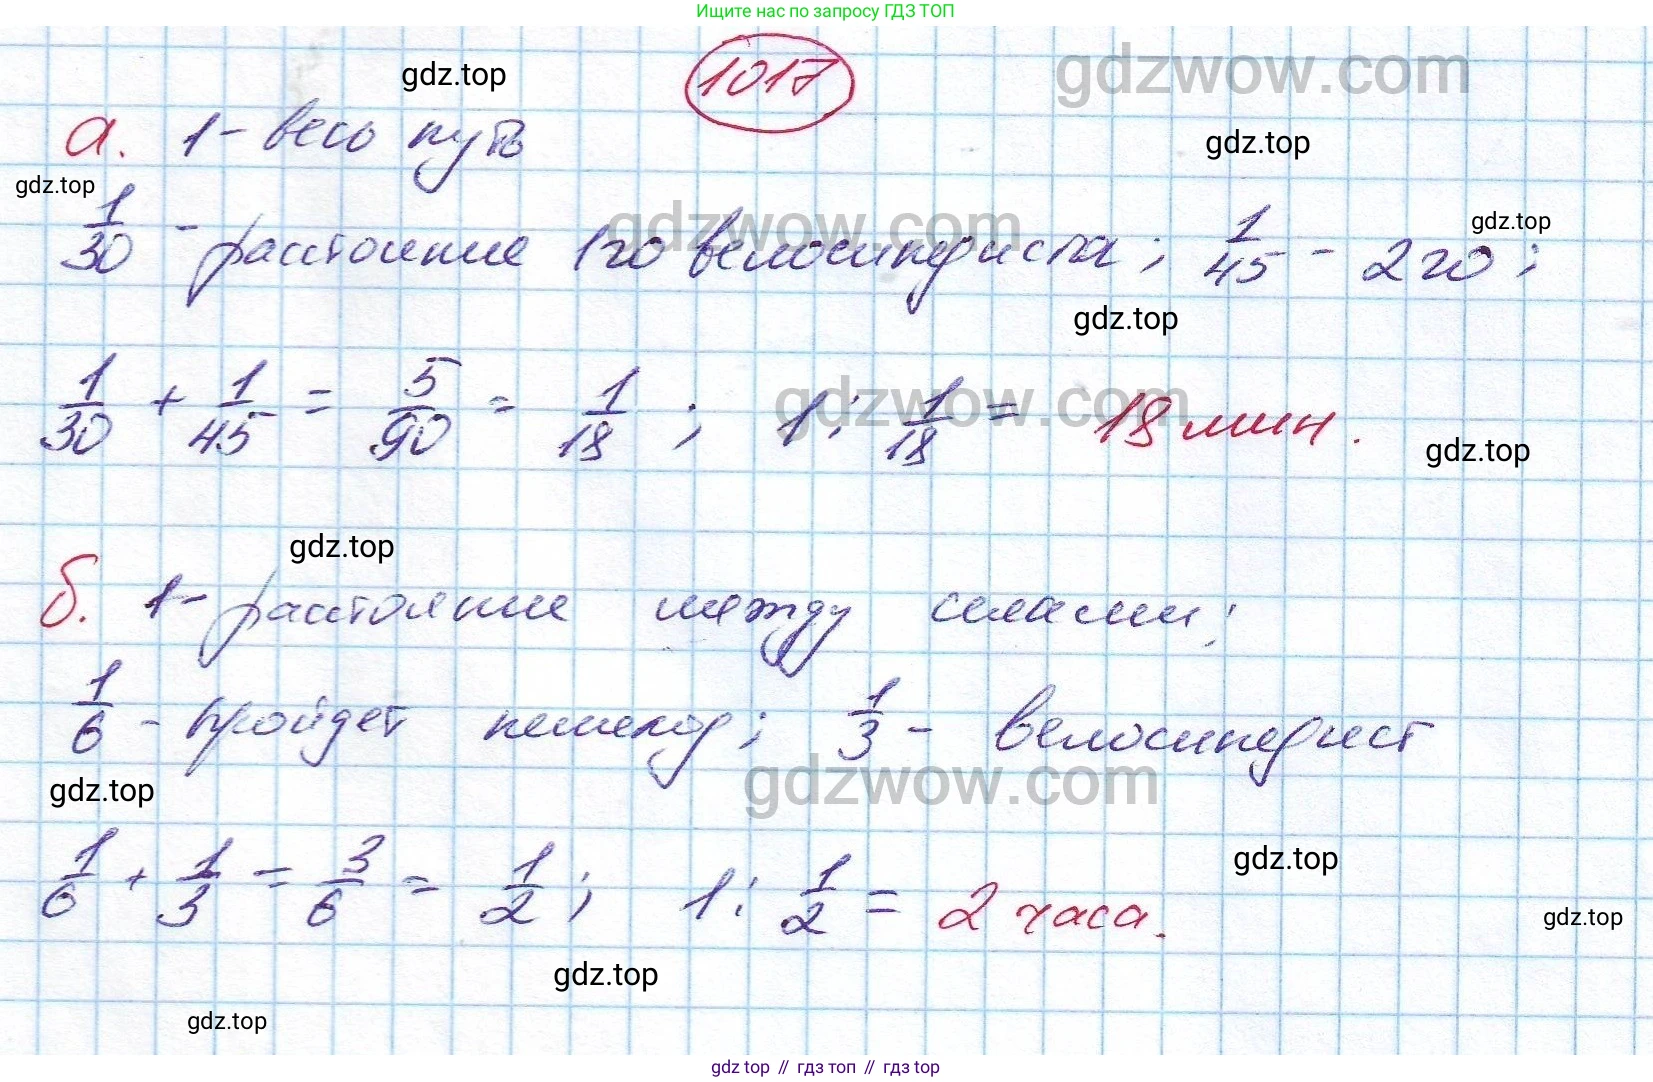 Ищите нас по запросу ГДЗ ТОП
1017
gdz.top
gdzwow.com
а. 1 - весь путь
gdz.top
gdz.top
1/30 - расстояние 1го велосипедиста; 1/45 - 2го;
gdzwow.com
gdz.top
gdz.top
1/30 + 1/45 = 5/90 = 1/18; 1 : 1/18 = 18 мин.
gdzwow.com
gdz.top
gdz.top
б. 1 - расстояние между селами;
1/6 - пройдет пешеход; 1/3 - велосипедист
gdz.top
gdzwow.com
1/6 + 1/3 = 3/6 = 1/2; 1 : 1/2 = 2 часа.
gdz.top
gdz.top
gdz.top
gdz.top
gdz top // гдз топ // gdz top